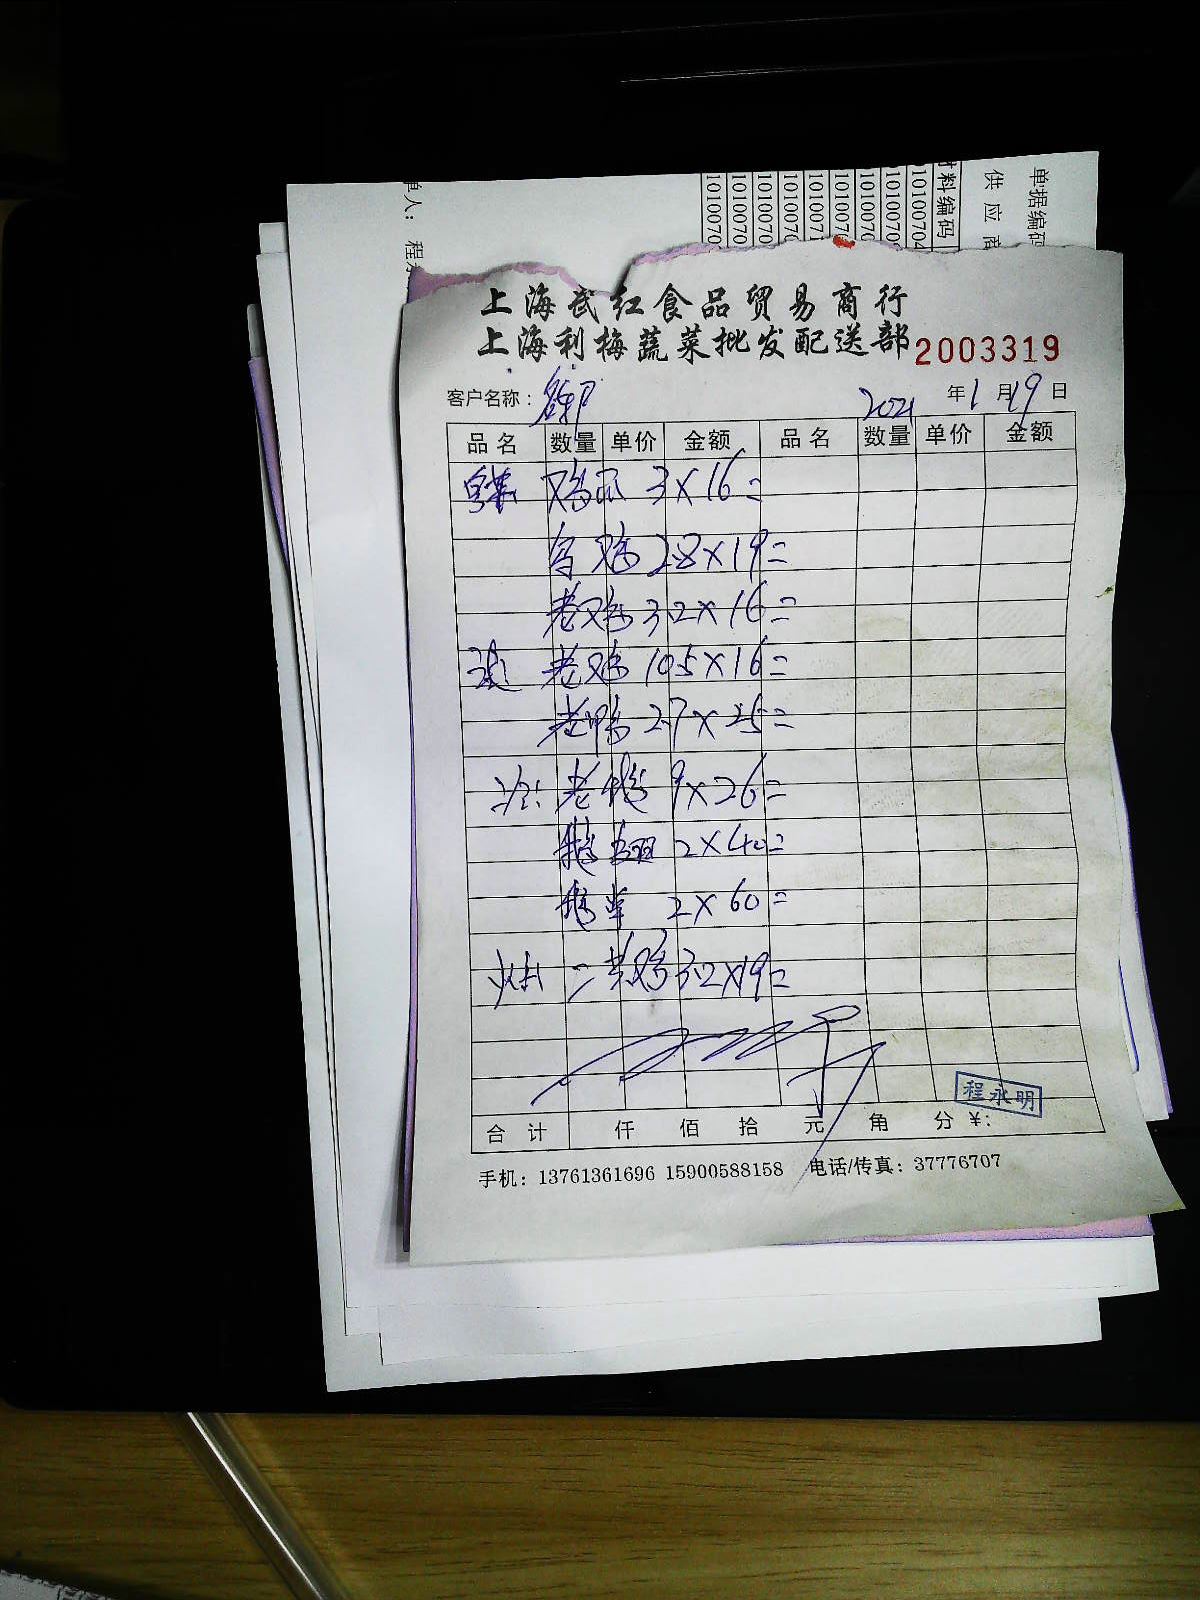 单据编码
供应商
材料编码
10100704
1010070
1010070
1010071
1010070
1010070
1010070
1010070
单人：
程永
上海武红食品贸易商行
上海利梅蔬菜批发配送部 2003319
客户名称： 2021 年 1 月 19 日
品名 数量 单价 金额 品名 数量 单价 金额
鸡爪 3×16=
乌鸡 2.8×19=
老鸡 3.2×16=
老鸡 10.5×16=
老鸭 2.7×25=
老鹅 9×26=
鹅 2×40=
鹅 2×60=
二黄鸡 3.2×19=
程永明
合计 仟 佰 拾 元 角 分 ¥:
手机：13761361696 15900588158 电话/传真：37776707